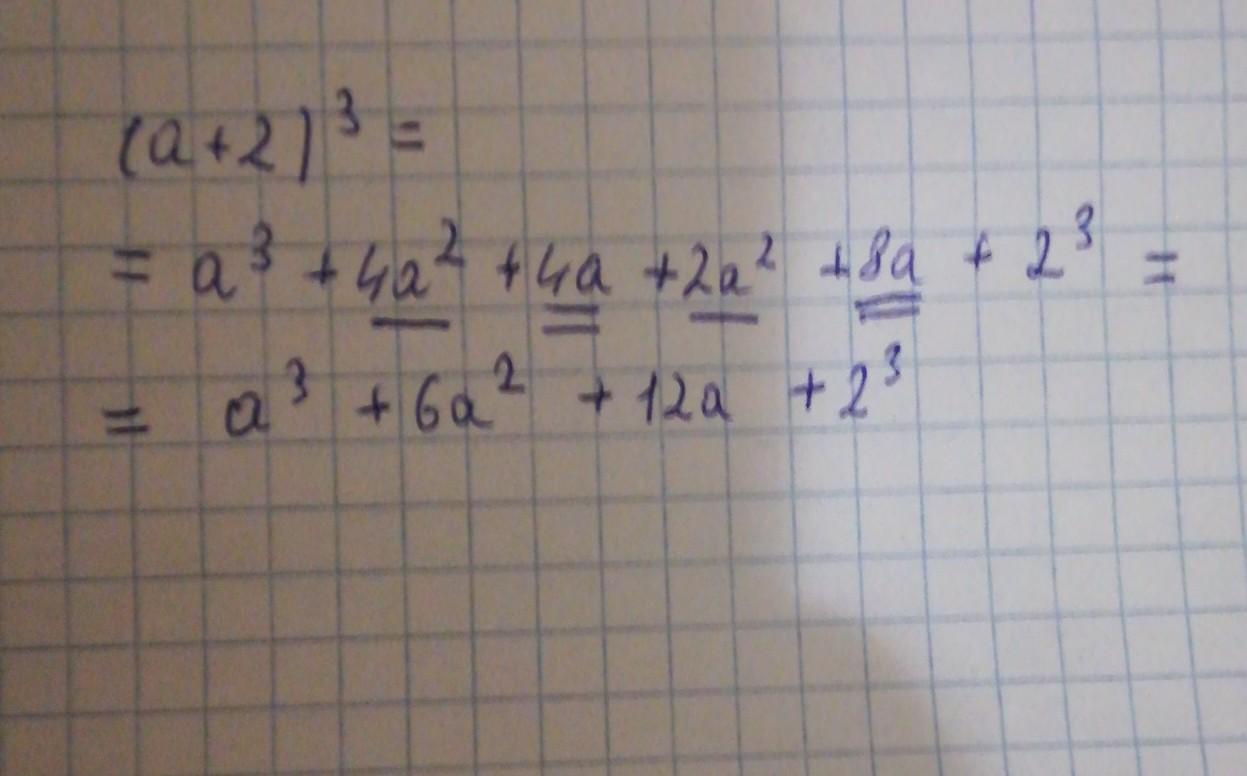 (a+2)³ =
= a³ + 4a² + 4a + 2a² + 8a + 2³ =
= a³ + 6a² + 12a + 2³